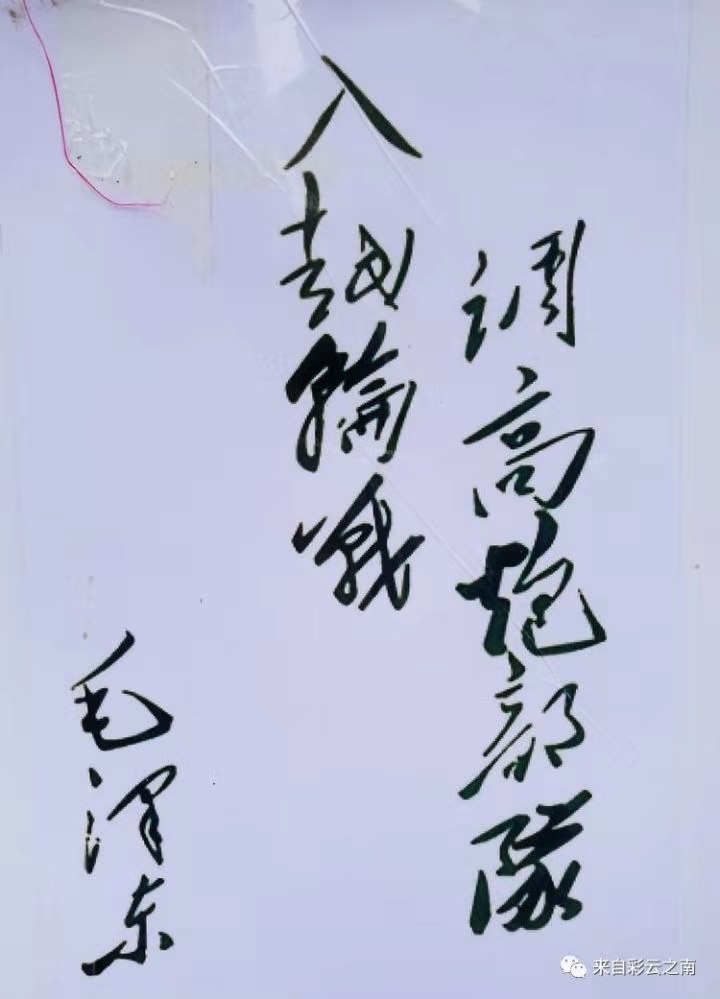 调高炮部隊
入越輪戰
毛泽东
来自彩云之南